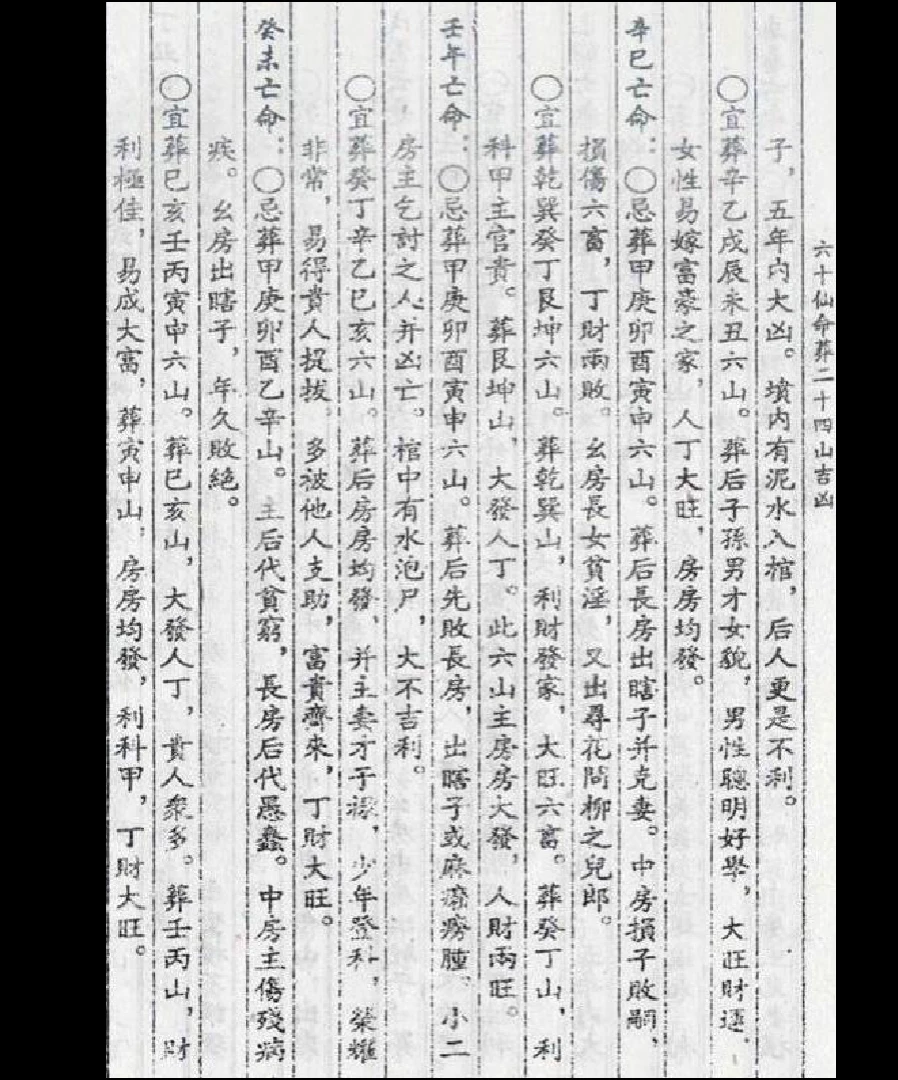 六十仙命葬二十四山吉凶
子，五年内大凶。墳内有泥水入棺，后人更是不利。
○宜葬辛乙戌辰未丑六山。葬后子孫男才女貌，男性聰明好學，大旺財運。
女性易嫁富豪之家，人丁大旺，房房均發。
辛巳亡命：○忌葬甲庚卯酉寅申六山。葬后長房出瞎子并克妻。中房損子敗嗣，
損傷六畜，丁財兩敗。幺房長女貧淫，又出尋花問柳之兒郎。
○宜葬乾巽癸丁艮坤六山。葬乾巽山，利財發家，大旺六畜。葬癸丁山，利
科甲主官貴。葬艮坤山，大發人丁。此六山主房房大發，人財兩旺。
壬午亡命：○忌葬甲庚卯酉寅申六山。葬后先敗長房，出瞎子或麻瘡癆腫。小二
房主乞討之人并凶亡。棺中有水泡尸，大不吉利。
○宜葬癸丁辛乙巳亥六山。葬后房房均發，并主妻才子祿，少年登科，榮耀
非常，易得貴人提拔，多被他人支助，富貴齊來，丁財大旺。
癸未亡命：○忌葬甲庚卯酉乙辛山。主后代貧窮，長房后代愚蠢。中房主傷殘病
疾。幺房出瞎子，年久敗絕。
○宜葬巳亥壬丙寅申六山。葬巳亥山，大發人丁，貴人衆多。葬壬丙山，財
利極佳，易成大富，葬寅申山，房房均發，利科甲，丁財大旺。